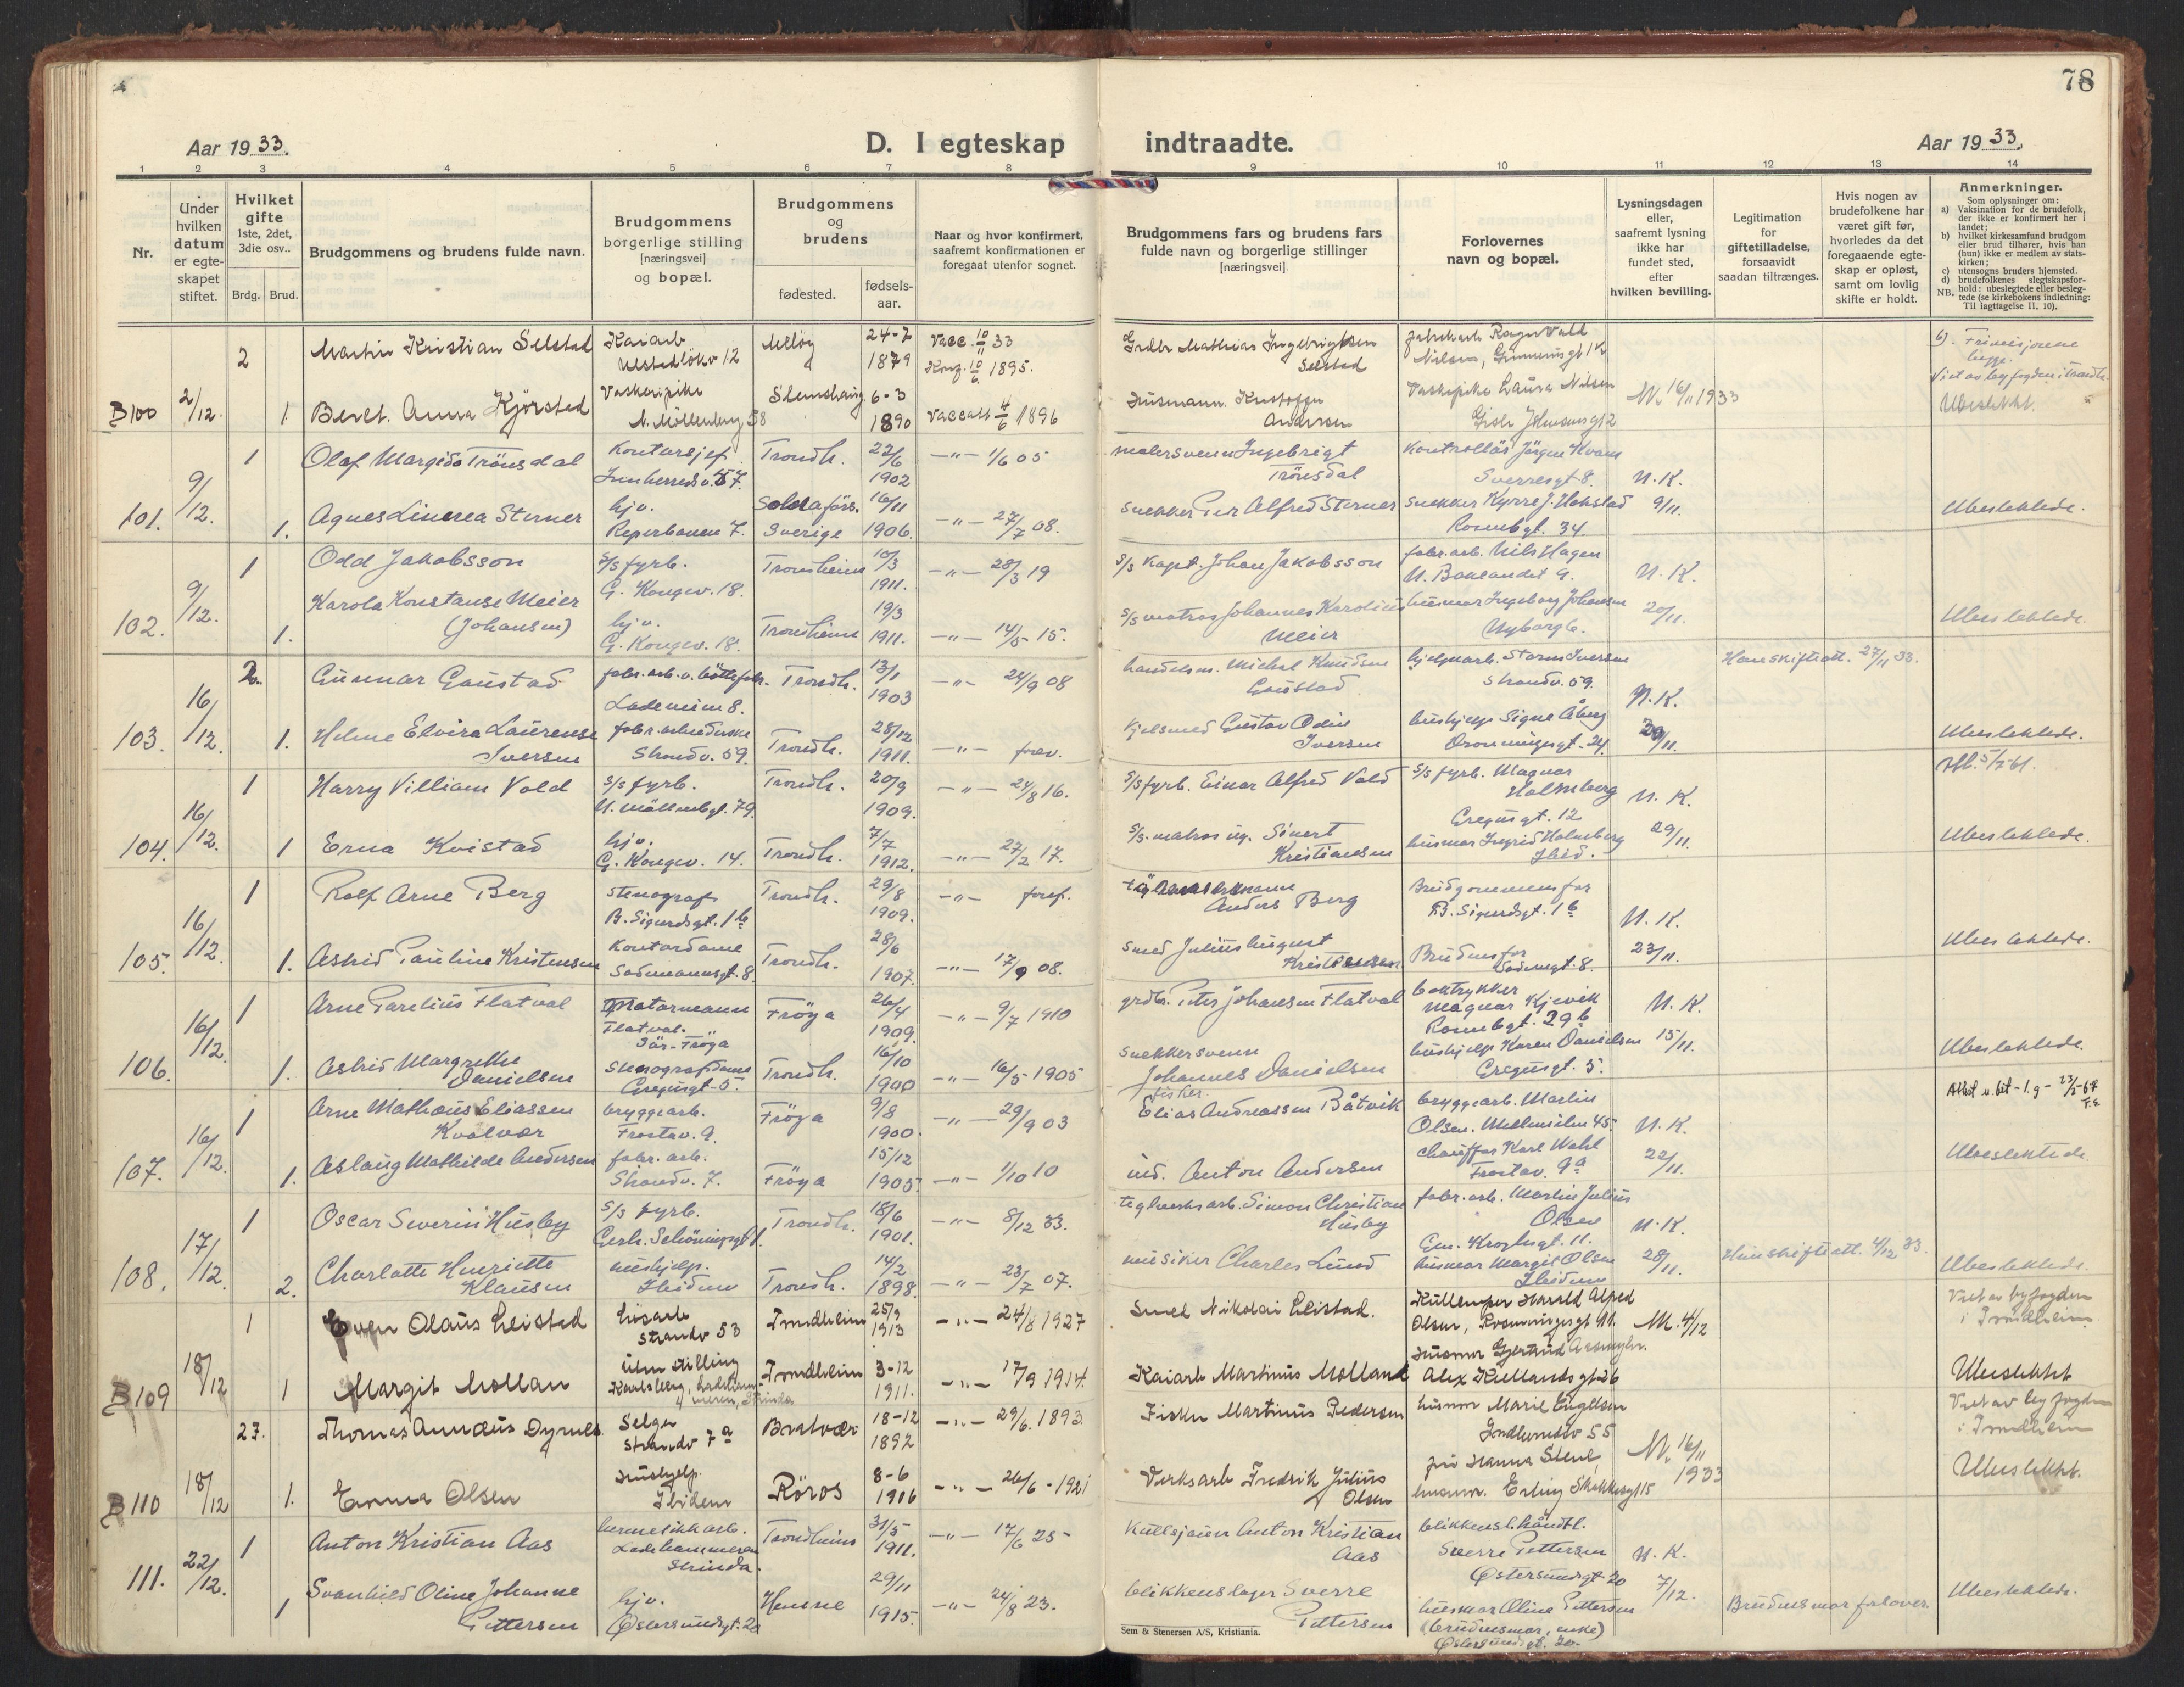 78
Aar 1933.
D. I egteskap indtraadte.
Aar 1933.
1 2 3 4 5 6 7 8 9 10 11 12 13 14
Nr.
Under hvilken datum er egte-skapet stiftet.
Hvilket gifte 1ste, 2det, 3die osv..
Brdg. Brud.
Brudgommens og brudens fulde navn.
Brudgommens borgerlige stilling [næringsvei] og bopæl.
Brudgommens og brudens
fødested.
fødsels-aar.
Naar og hvor konfirmert, saafremt konfirmationen er foregaat utenfor sognet.
Brudgommens fars og brudens fars fulde navn og borgerlige stillinger [næringsvei].
Forlovernes navn og bopæl.
Lysningsdagen eller, saafremt lysning ikke har fundet sted, efter hvilken bevilling.
Legitimation for giftetilladelse, forsaavidt saadan tiltrænges.
Hvis nogen av brudefolkene har været gift før, hvorledes da det foregaaende egte-skap er opløst, samt om lovlig skifte er holdt.
Anmerkninger.
Som oplysninger om:
a) Vaksination for de brudefolk, der ikke er konfirmert her i landet;
b) hvilket kirkesamfund brudgom eller brud tilhører, hvis han (hun) ikke er medlem av stats-kirken;
c) utensogns bruders hjemsted.
d) brudefolkenes slegtskapsfor-hold: ubeslegtede eller besleg-tede (se kirkebokens indledning:
NB. Til iagttagelse II. 10).
2 Martin Kristian Selstad Kaiarb Ulstadløkv 12 Meløy 24-7 1879 Vacc. 10/11 33 Konf. 10/6 1895.
Mathias Ingebrigtsen Selstad
Ragnvald Nilsen,
B100 2/12. 1. Beret Anna Kjørstad Vaskeripike N. Møllenberg 58 6-3 1890 1896
Husmann Kristoffer Andersen
Vaskepike Laura Nilsen
M. 16/11 1933
Ubeslektet.
1 Olaf Margido Trønsdal Kontorsjef Innherredsv. 57. Trondh. 22/6 1902 -"- 1/6 05
malersvenn Ingebrigt Trønsdal
Kontrollør Jørgen Kvam Sverresgt 8.
N.K.
101. 9/12. 1. Agnes Linnea Sterner hjv. Reperbanen 7. Sverige 16/11 1906. -"- 27/7 08.
snekker Per Alfred Sterner
snekker Kyrre J. Hokstad Rosenbgt. 34.
9/11.
Ubeslektede.
1 Odd Jakobsson s/s fyrb. G. Kongev. 18. Trondheim 10/3 1911. -"- 28/3 19
s/s Kapt. Johan Jakobsson
fabr. arb. Nils Hagen N. Baklandet 9.
N.K.
102. 9/12. 1. Karola Konstanse Meier (Johansen) hjv. G. Kongev. 18. Trondheim 19/3 1911. -"- 14/5 15.
s/s matros Johannes Karolius Meier
husmor Ingeborg Johansen Nyborg 6.
20/11.
Ubeslektede.
2. Gunnar Gaustad Ladeveien 8. Trondh. 13/1 1903 -"- 24/9 08
handelsm. Michal Knudsen Gaustad
hjelpearb. Storm Iversen Strandv. 59.
N.K.
Han skifteatt. 27/11 33.
103. 16/12. 1. Helene Elvira Laurense Iversen fabr. arbeiderske Strandv. 59. Trondh. 28/12 1911. -"- frav.
Kjelsmed Gustav Odin Iversen
hushjelp Signe Åberg Dronningensgt. 24.
30/11.
Ubeslektede.
1 Harry Villiam Vold s/s fyrb. N. Møllenbgt. 79. Trondh. 20/9 1909. -"- 24/8 16.
s/s fyrb. Einar Alfred Vold
s/s fyrb. Magnar Holmberg Gregusgt. 12
N.K.
104. 16/12. 1 Erna Kvistad hjv. G. Kongev. 14. Trondh. 7/7 1912. -"- 27/2 17.
s/s. matros Sivert Kristiansen
husmor Ingrid Holmberg Ibid.
29/11.
Ubeslektede.
1 Rolf Arne Berg stenograf B. Sigurdsgt. 1b Trondh. 29/8 1909. -"-
Anders Berg
Brudgommens far B. Sigurdsgt. 1b
N.K.
105. 16/12. 1. Astrid Pauline Kristensen Kontordame Sadmannsgt. 8 Trondh. 28/6 1907. -"- 17/9 08.
smed Julius August Kristensen
Brudens far 8.
23/11.
Ubeslektede.
1 Arne Parelius Flatval Motormann Flatval. Sør-Frøya Frøya 26/4 1909. -"- 9/7 1910
grdbr. Peter Johansen Flatval
boktrykker Magnar Kjervik Rosenbgt. 29b
N.K.
106. 16/12. 1. Astrid Margrethe Danielsen Stenografdame Gregusgt. 5. Trondh. 16/10 1900 -"- 16/5 1905
snekkersvenn Johannes Danielsen
hushjelp Karen Danielsen Gregusgt. 5.
15/11.
Ubeslektede.
1 Arne Mathæus Eliassen Kvalvær bryggearb. Frostav. 9. Frøya 9/8 1900. -"- 29/9 03
fisker. Elias Andreassen Båtvik
bryggearb. Martin Olsen. 45.
N.K.
107. 16/12. 1. Aslaug Mathilde Andersen fabr. arb. Strandv. 7. Frøya 15/12 1905. -"- 1/10 10
ind. Anton Andersen
Chauffør Karl Wahl Frostav. 9a
22/11.
Ubeslektede.
1 Oscar Severin Husby s/s fyrb. Gerh. Schøningsgt. 1. Trondh. 18/6 1901. -"- 8/12 33.
teglverksarb. Simon Christian Husby
fabr. arb. Martin Julius Olsen Gen. Kroghsgt. 11.
N.K.
108. 17/12. 2. Charlotte Henriette Klausen hushjelp. Ibidem Trondh. 14/2 1898. -"- 23/7 07.
musiker Charles Lund
husmor Margit Olsen Ibidem
28/11.
Hun skifteatt. 4/12 33.
Ubeslektede.
1 Even Olaus Leistad Løsarb Strandv 53 Trondheim 25/9 1913 -"- 24/8 1927
Smed Nikolai Leistad.
Harald Alfred Olsen,
M. 4/12
Viet av byfogden i Trondheim
B109 18/12 1 Margit Mollan Uten stilling Trondheim 3-12 1911. -"- 17/9 1914.
Kaiarb Martinus Molland
Husmor Gjertrud Alex Kiellandsgt 26
Ubeslektet
27. Thomas Annæus Dyrnes. Selger Strandv 7a Bratvær 18-12 1892 -"- 29/6. 1893
Fisker Martinus Pedersen
husmor Marie Engelsen 55
M. 16/11 1933
Viet av byfogden i Trondheim
B110 18/12 1. Emma Olsen Hushjelp. Ibidem Røros 8-6 1916 -"- 26/6 - 1921
Verksarb Fredrik Julius Olsen
fru Hanna
Ubeslektet.
1 Anton Kristian Aas Ladehammeren Strinda. Trondheim 31/5 1911. -"- 17/6 25
Kullsjauer Anton Kristian Aas
Sverre Pettersen Østersundsgt 20
N.K.
111. 22/12. 1 Svanhild Oline Johanne Pettersen hjv. Østersundsgt. 20 Hemne 29/11 1915. -"- 24/8 23.
blikkenslager Sverre Pettersen
husmor Oline Pettersen (brudens mor, enke) Østersundsgt. 20.
7/12.
Brudens mor forlover.
Ubeslektede.
Sem & Stenersen A/S, Kristiania.